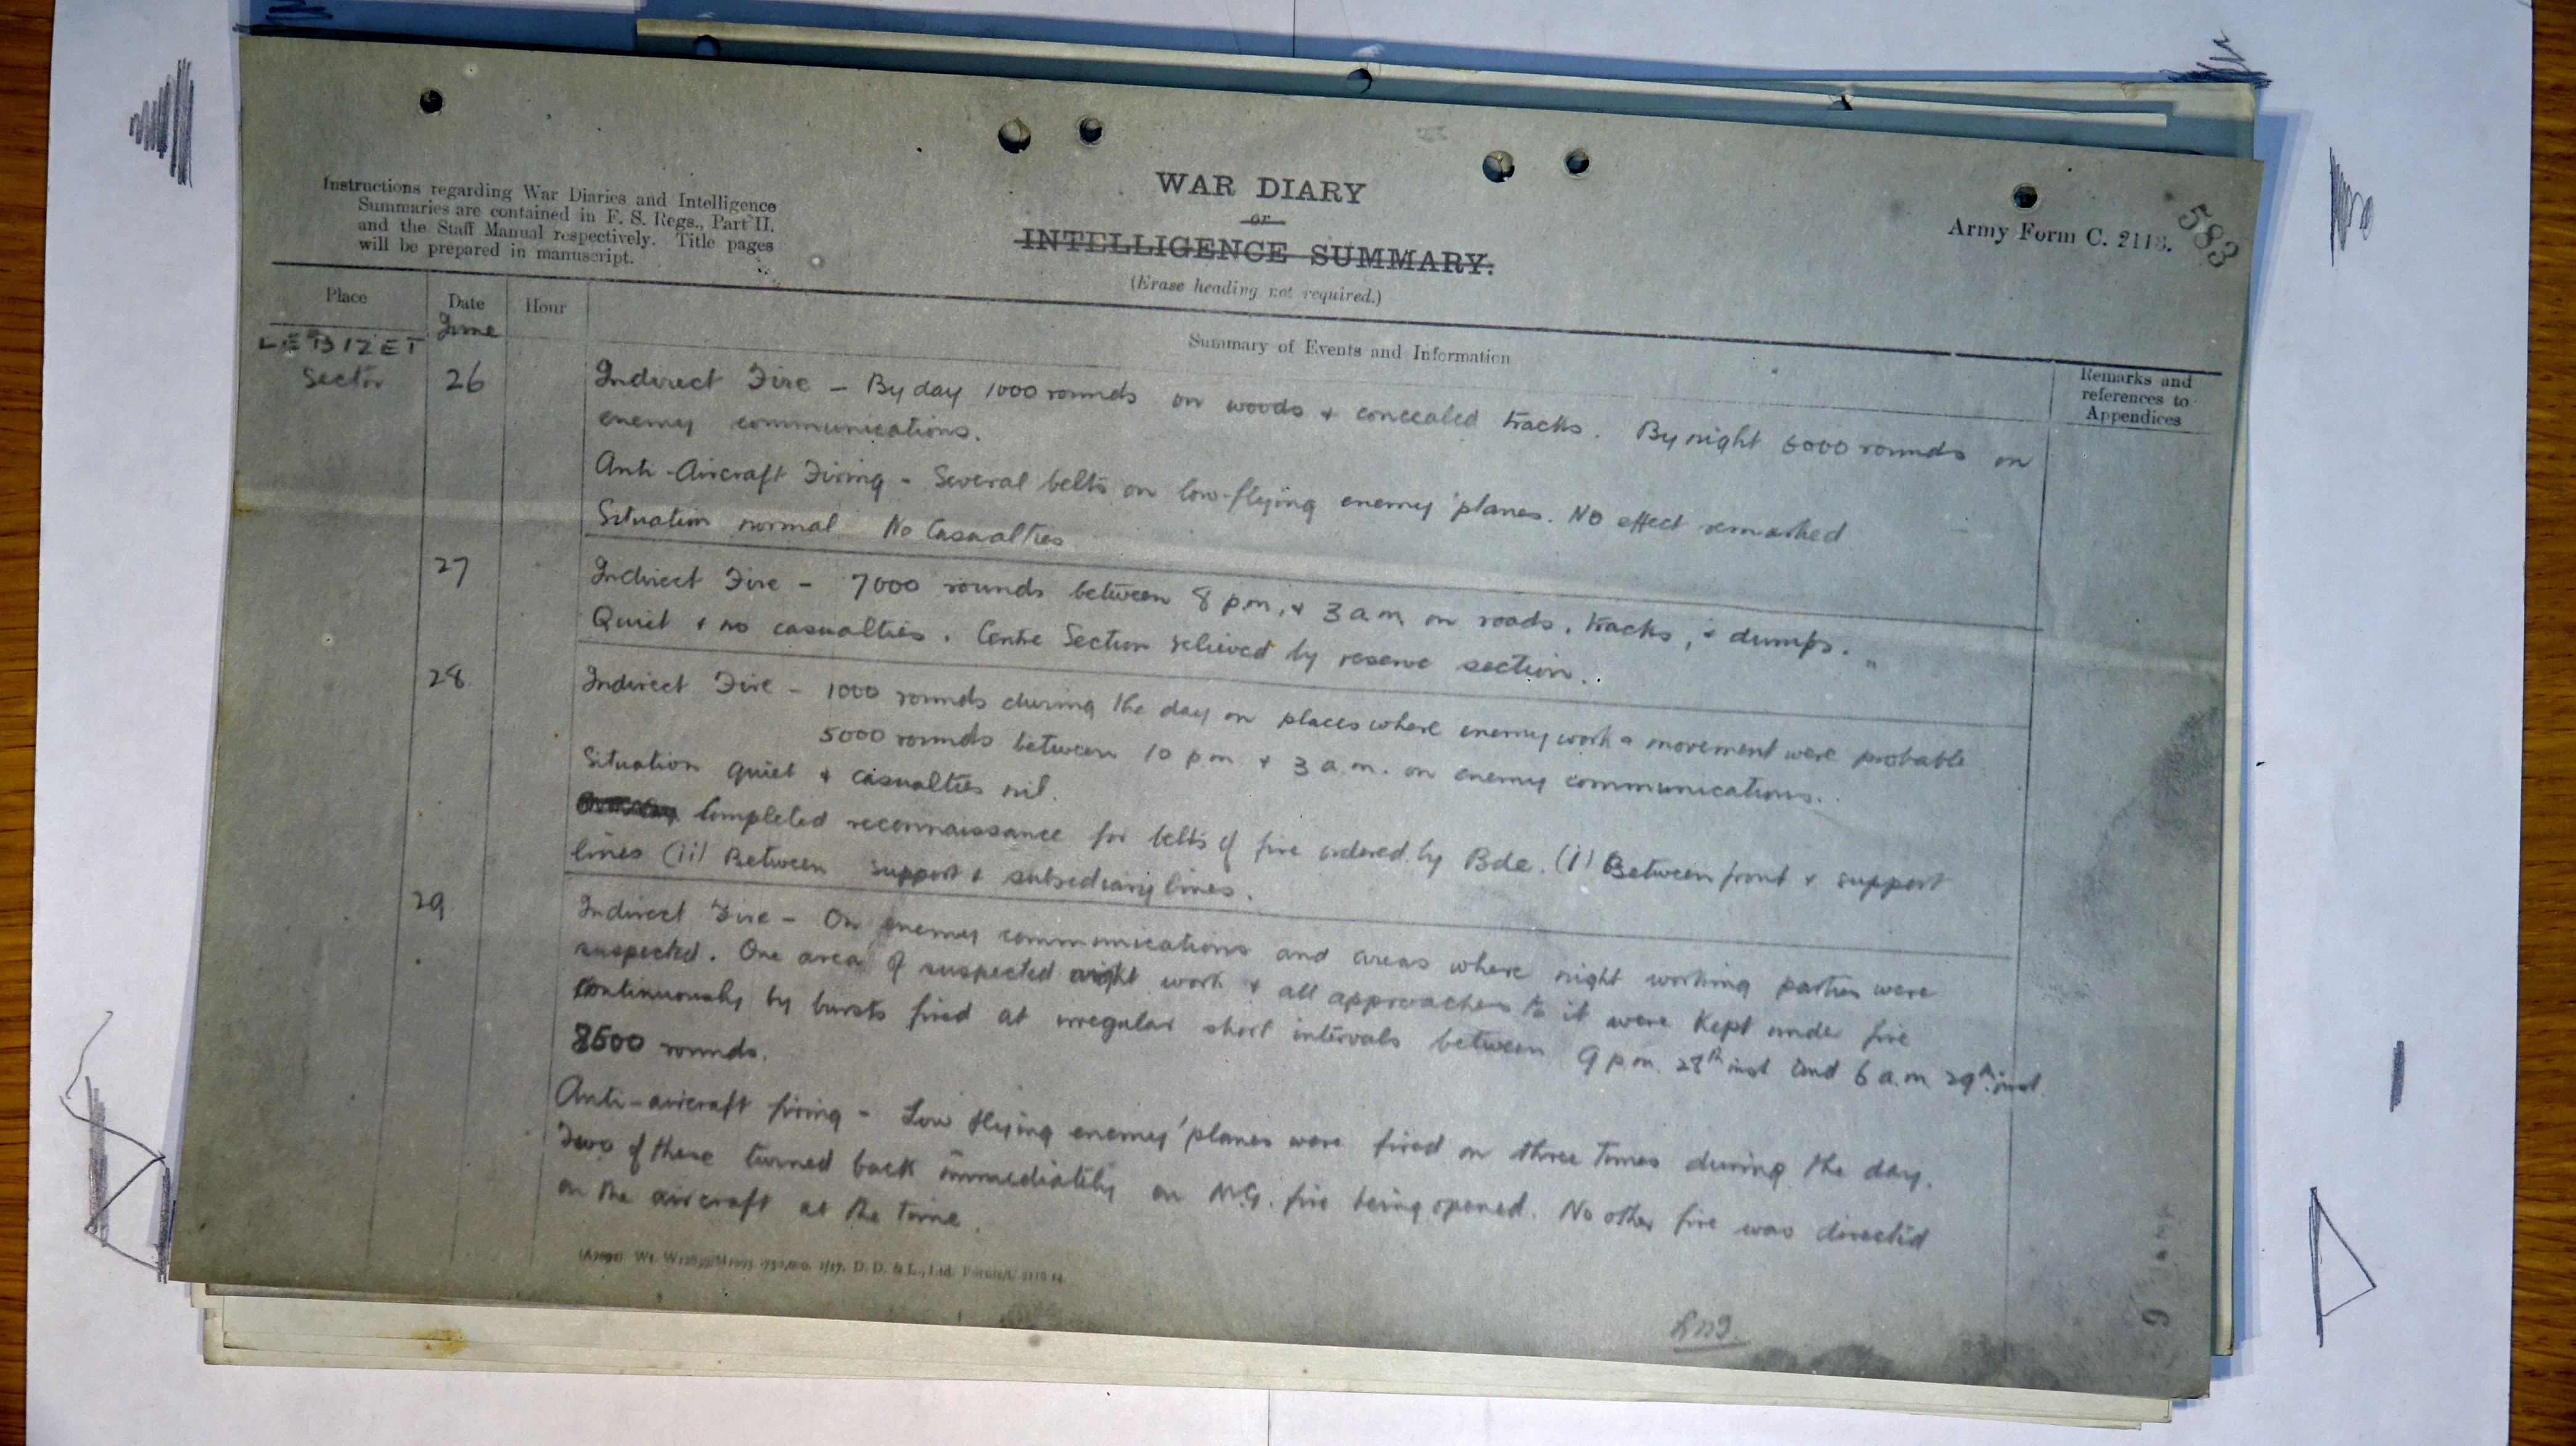 583
Instructions regarding War Diaries and Intelligence
Summaries are contained in F. S. Regs., Part II.
and the Staff Manual respectively. Title pages
will be prepared in manuscript.
WAR DIARY
or
INTELLIGENCE SUMMARY.
(Erase heading not required.)
Army Form C. 2118.
Place
Date
Hour
Summary of Events and Information
Remarks and
references to
Appendices
June
LE BIZET
Sector
26
Indirect Fire - By day 1000 rounds on woods & concealed tracks. By night 6000 rounds on
enemy communications.
Anti-Aircraft Firing - Several belts on low-flying enemy 'planes. No effect remarked
Situation normal No Casualties
27
Indirect Fire - 7000 rounds between 8 p.m. & 3 a.m. on roads, tracks, & dumps.
Quiet & no casualties. Centre Section relieved by reserve section.
28
Indirect Fire - 1000 rounds during the day on places where enemy work or movement were probable
5000 rounds between 10 p.m. & 3 a.m. on enemy communications.
Situation quiet & casualties nil.
Completed reconnaissance for belts of fire ordered by Bde. (i) Between front & support
lines (ii) Between support & subsidiary lines.
29
Indirect Fire - On enemy communications and areas where night working parties were
suspected. One area of suspected night work & all approaches to it were kept under fire
continuously by bursts fired at irregular short intervals between 9 p.m. 28th inst and 6 a.m. 29th inst
8500 rounds.
Anti-aircraft firing - Low flying enemy 'planes were fired on three times during the day.
Two of these turned back immediately on M.G. fire being opened. No other fire was directed
on the aircraft at the time.
D. D. & L., Ltd.